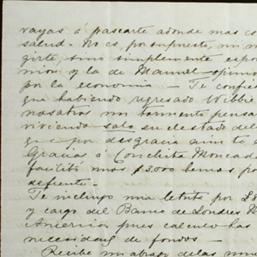 vayas á pasearte adonde mas co
salud. No es, por supuesto, mi
girte, sino simplemente espo
mion y la de Manuel opinio
por la economia — Te confie
que habiendo regresado
nosotros un tormento pensa
viviendo solo en
que por desgracia aun te
Gracias á Conchita Moncad
facilitó mos $3.000 hemos po
Te incluyo una letrita por £
y cargo del Banco de Londres
pues calculo has
necesidad de fondos —
Recibe un abrazo de las